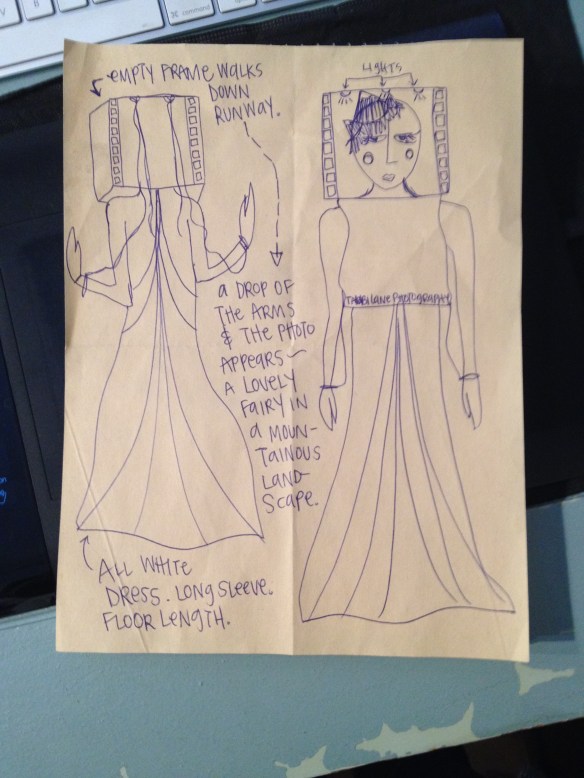 command
LIGHTS
EMPTY FRAME WALKS
DOWN
RUNWAY.
a DROP OF
THE ARMS
& THE PHOTO
APPEARS—
A LOVELY
FAIRY IN
a MOUN-
TAINOUS
LAND-
SCAPE.
PHOTOGRAPHY
ALL WHITE
DRESS. LONG SLEEVE.
FLOOR LENGTH.